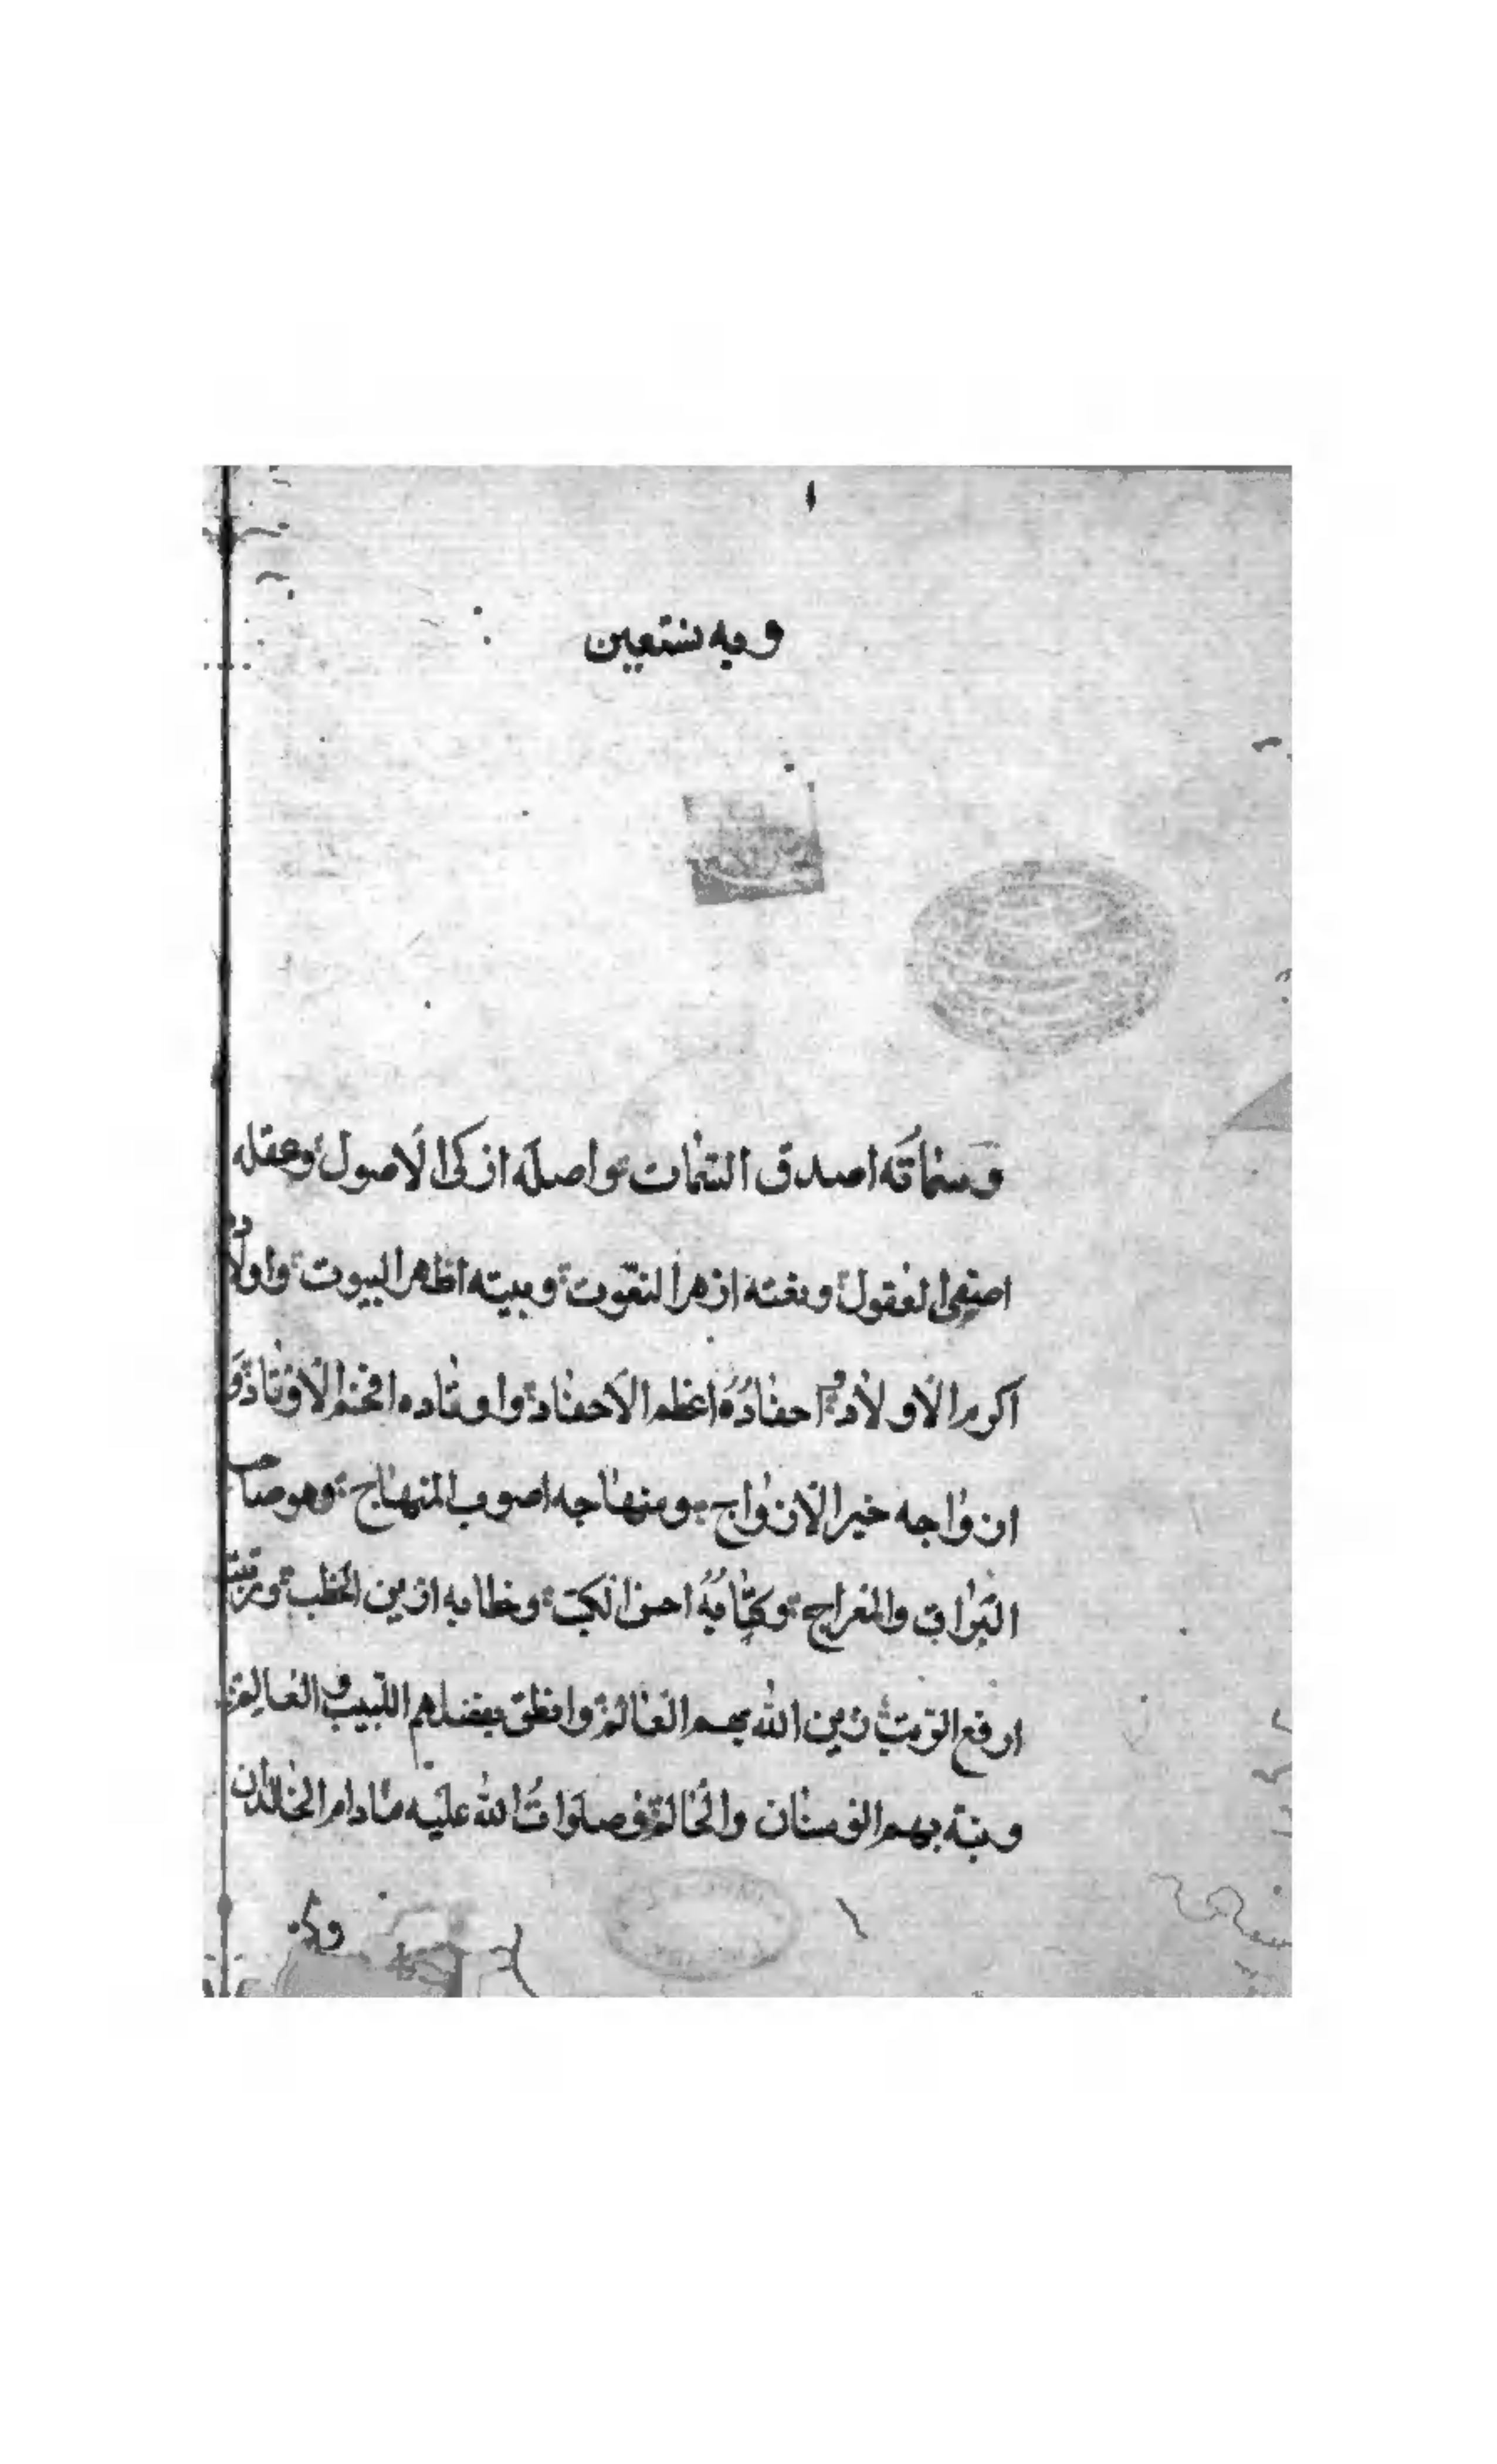 وبه نستعين
وسماته اصدق السمات واصله ازكى الاصول وعقله
اصفى العقول ونعته ازهر النعوت وبيته اطهر البيوت واولاده
اكرم الاولاد و احفاده اعظم الاحفاد واوتاده افخم الاوتاد و
ازواجه خير الازواج ومنهاجه اصوب المنهاج وهو صاحب
البراق والمعراج وكتابه احسن الكتب وخطابه ازين الخطب ورتبته
ارفع الرتب زين الله بهم العالم وانطق بفضلهم اللبيب والعالم
ونبه بهم الوسنان والحالم فصلوات الله عليه ما دام الخالدان